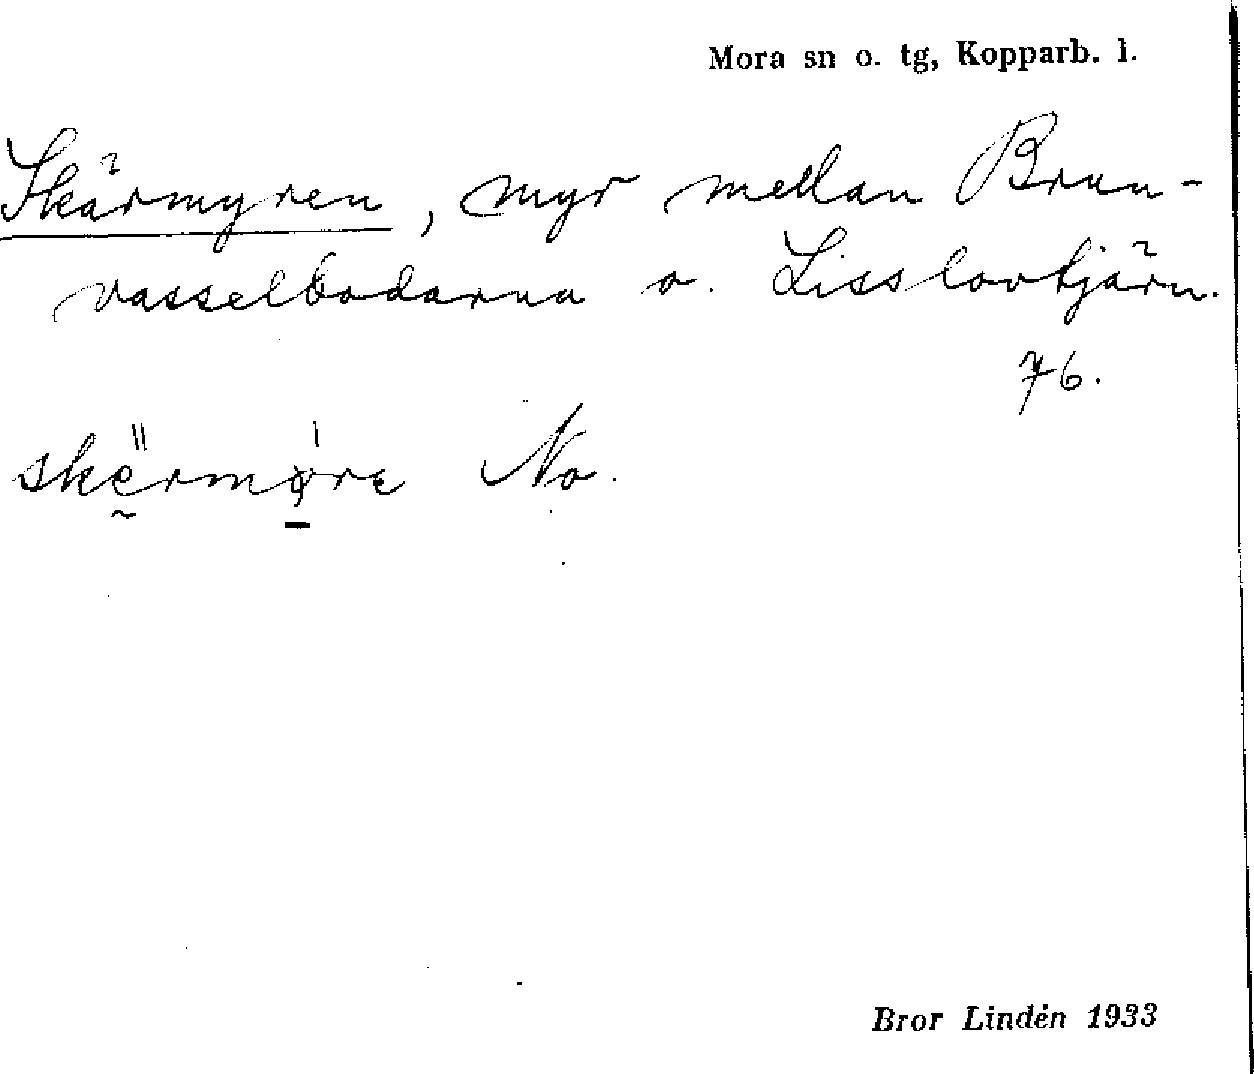 Mora sn o. tg, Kopparb. l.
Skärmyren, myr mellan Brun-
vasselbodarna o. Lisslovtjärn.
76.
skèrmỳrɛ No.
Bror Lindén 1933